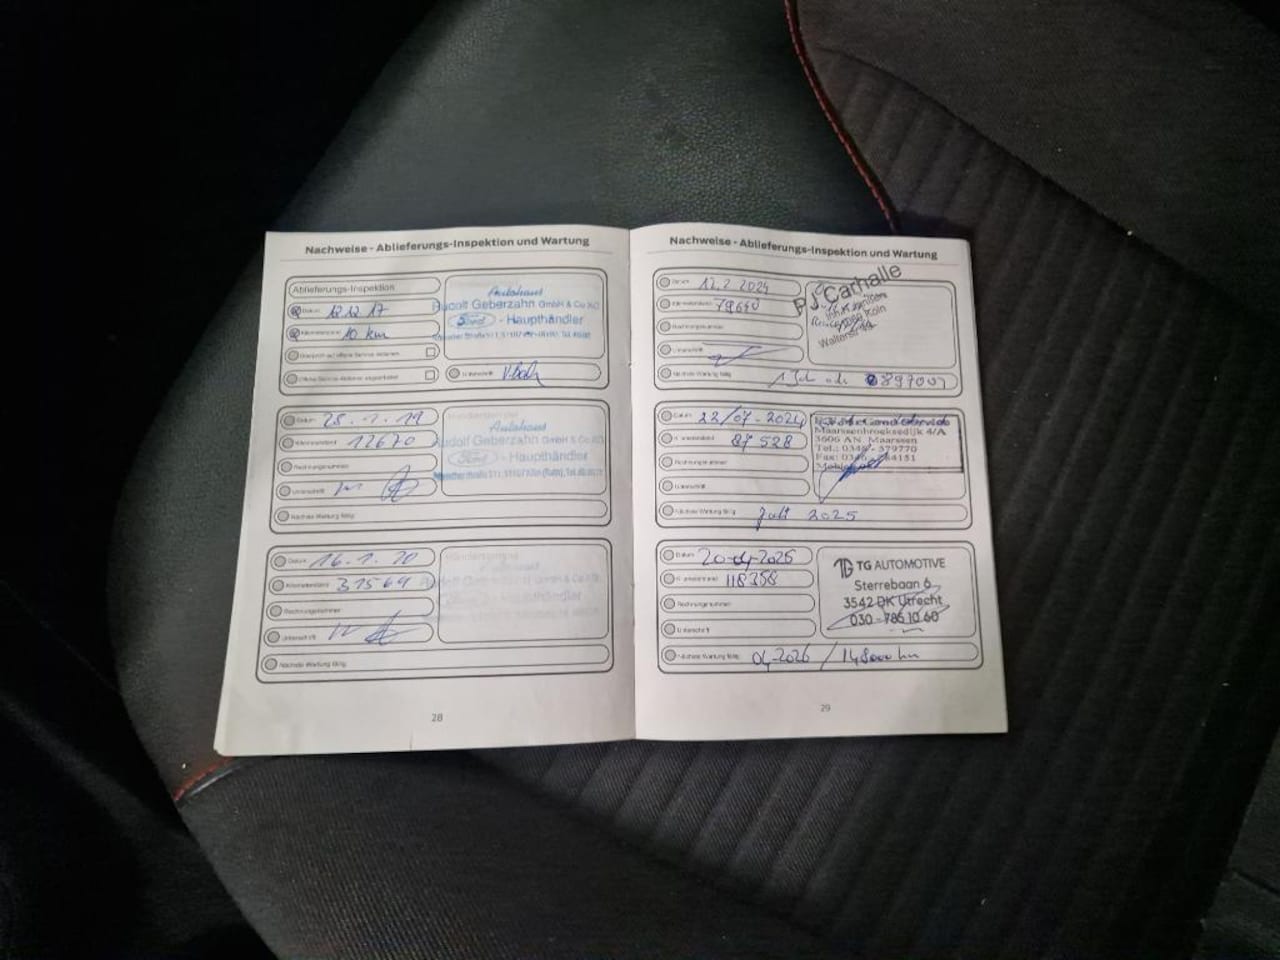 Nachweise - Ablieferungs-Inspektion und Wartung
Ablieferungs-Inspektion
Datum 12.12.17
Kilometerstand 10 km
Überprüft auf offene Service-Aktionen
Offene Service-Aktionen
Unterschrift
Autohaus
Rudolf Geberzahn GmbH & Co KG
Ford - Haupthändler
Datum 28.1.19
Kilometerstand 12670
Rechnungsnummer
Unterschrift
Nächste Wartung fällig
Autohaus
Rudolf Geberzahn GmbH & Co KG
Ford - Haupthändler
Datum 16.1.20
Kilometerstand 31569
Rechnungsnummer
Unterschrift
Nächste Wartung fällig
28
Nachweise - Ablieferungs-Inspektion und Wartung
Datum 12.2.2024
Kilometerstand 79640
Rechnungsnummer
Unterschrift
Nächste Wartung fällig 897001
PJ Carhalle
Köln
Datum 22/07-2024
Kilometerstand 87528
Rechnungsnummer
Unterschrift
Nächste Wartung fällig Juli 2025
Maarssenbroeksedijk 4/A
3606 AN Maarssen
Tel.: 0346 - 579770
Fax: 0346
Datum 20-04-2025
Kilometerstand 118358
Rechnungsnummer
Unterschrift
Nächste Wartung fällig 04-2026 / 148000 km
TG TG AUTOMOTIVE
Sterrebaan 6
3542 DK Utrecht
030 - 785 10 60
29